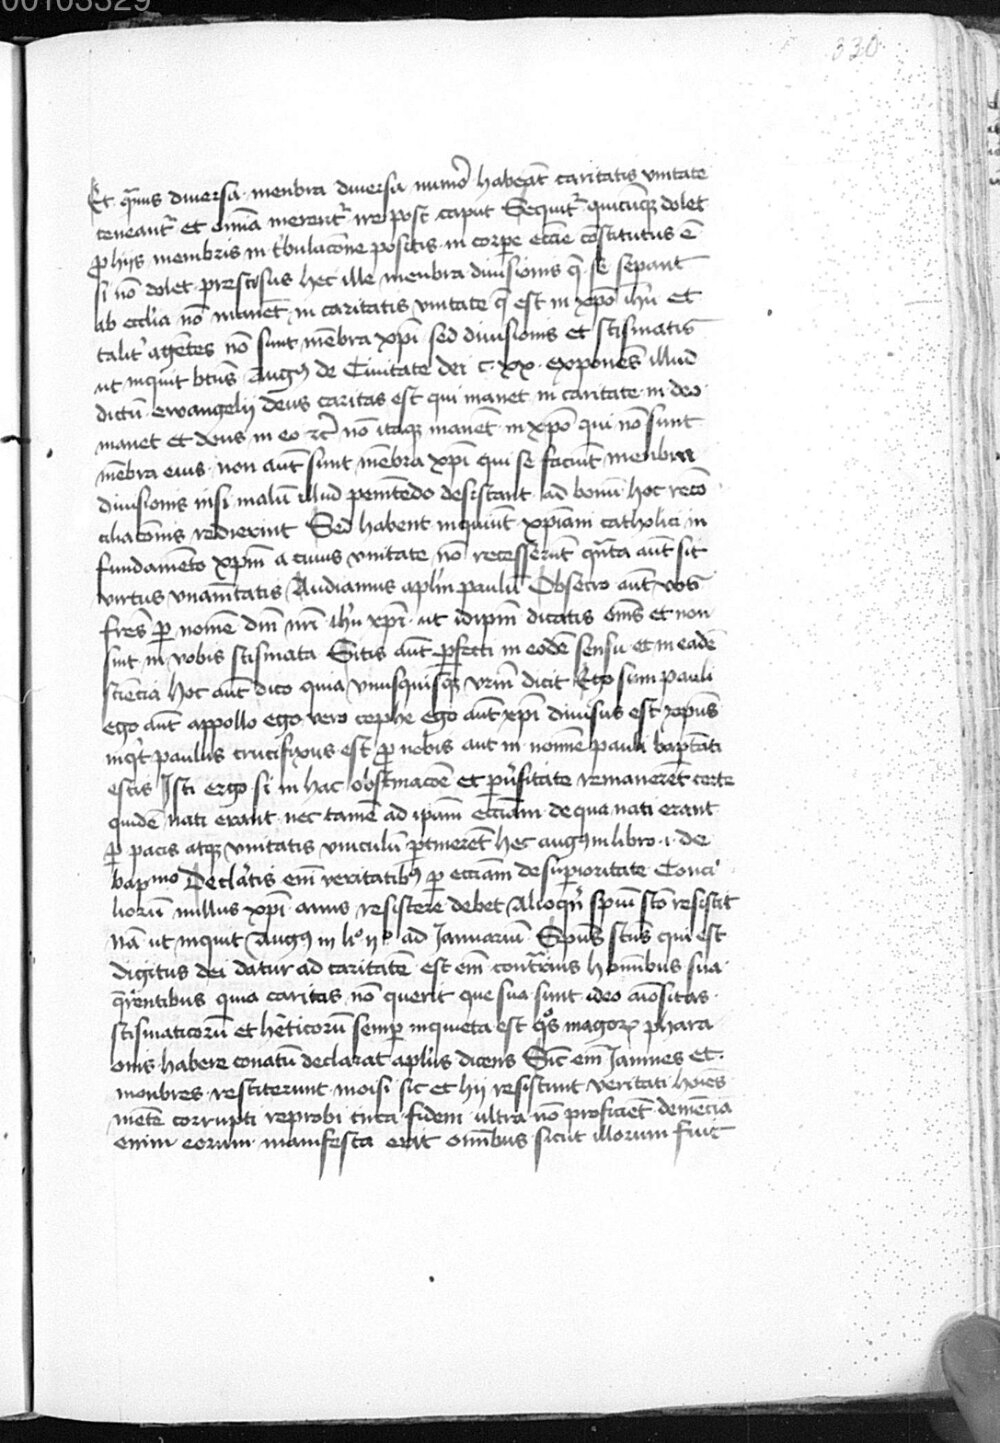 00103329
330
Et quis diversa menbra diversa numo habeat caritatis unitate
teneant et omia merent ire post caput Sequit quicuqz dolet
p hiis membris in tbulacone positis in corpe eccie costitutus e
si no dolet prescisus hec ille menbra divisionis q se separt
ab ecclia no manet in caritatis unitate q est in xpo ihu et
talit agetes no sunt mebra xpi sed divisionis et scismatis
ut inquit btus Aug9 de Civitate dei c xx expones illud
dictu ewangelij deus caritas est qui manet in caritate in deo
manet et deus in eo rc no itaqz manet in xpo qui no sunt
mebra eius non aut sunt mebra xpi qui se faciut menbra
divisionis nisi malu illud penitedo desistant ad bonu hoc reco
ciliaconis redierint Sed habent inquiut xpiani catholici in
fundameto xpm a cuius unitate no recesserut quta aut sit
virtus unaitatis Audiamus aplm paulu Obsecro aut vos
fres p nome dni nri ihu xpi ut idipm dicatis oms et non
sint in vobis scismata Sitis aut pfecti in eode sensu et in eade
sciecia hoc aut dico quia unusquisqz vrm dicit Ego sum pauli
ego aut appollo ego vero cephe ego aut xpi divisus est xpus
inqt paulus crucifixus est p vobis aut in nomine pauli baptizati
estis Isti ergo si in hac obstinacoe et pversitate remaneret certe
quide nati erant nec tame ad ipam ecciam de qua nati erant
p pacis atqz unitatis vinculu ptineret hec aug9 in libro i de
bapmo Declatis eni veritatib9 p ecciam de supioritate Conci
liorum nullus xpi anus resistere debet Alioqn spui sco resistit
Na ut inquit Aug9 in li° ij° ad Januariu Spus scus qui est
digitus dei datur ad caritate est eni contrius hominibus sua
querentibus quia caritas no querit que sua sunt ideo aiositas
scismaticoru et heticoru semp inquieta est qs magorz phara
onis habere conatu declarat aplus dicens Sic eni Jamnes et
monbres restiterunt moisi sic et hii resistunt veritati hoies
mete corrupti reprobi circa fidem ultra no proficiet demecia
enim eorum manifesta erit omibus sicut illorum fuit